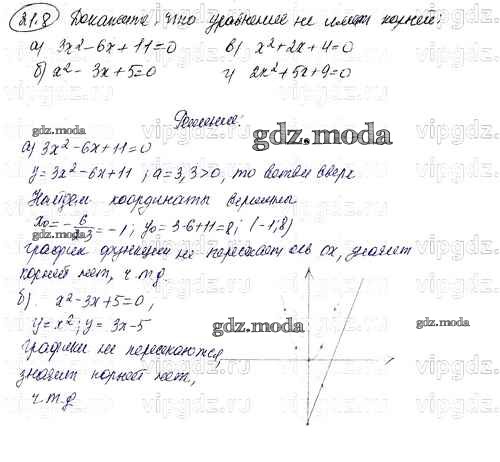 21.8 Докажите, что уравнение не имеет корней:
а) 3x² - 6x + 11 = 0 в) x² + 2x + 4 = 0
б) x² - 3x + 5 = 0 г) 2x² + 5x + 9 = 0
Решение.
gdz.moda
а) 3x² - 6x + 11 = 0
y = 3x² - 6x + 11; a = 3, 3 > 0, то ветви вверх
Найдем координаты вершины
x₀ = -6/2·3 = -1; y₀ = 3-6+11 = 8; (-1; 8)
gdz.moda
График функции не пересекает ось Ox, значит
корней нет, ч.т.д.
б) x² - 3x + 5 = 0,
y = x²; y = 3x - 5
Графики не пересекаются,
значит корней нет,
ч.т.д.
gdz.moda
gdz.moda
gdz.moda
gdz.moda